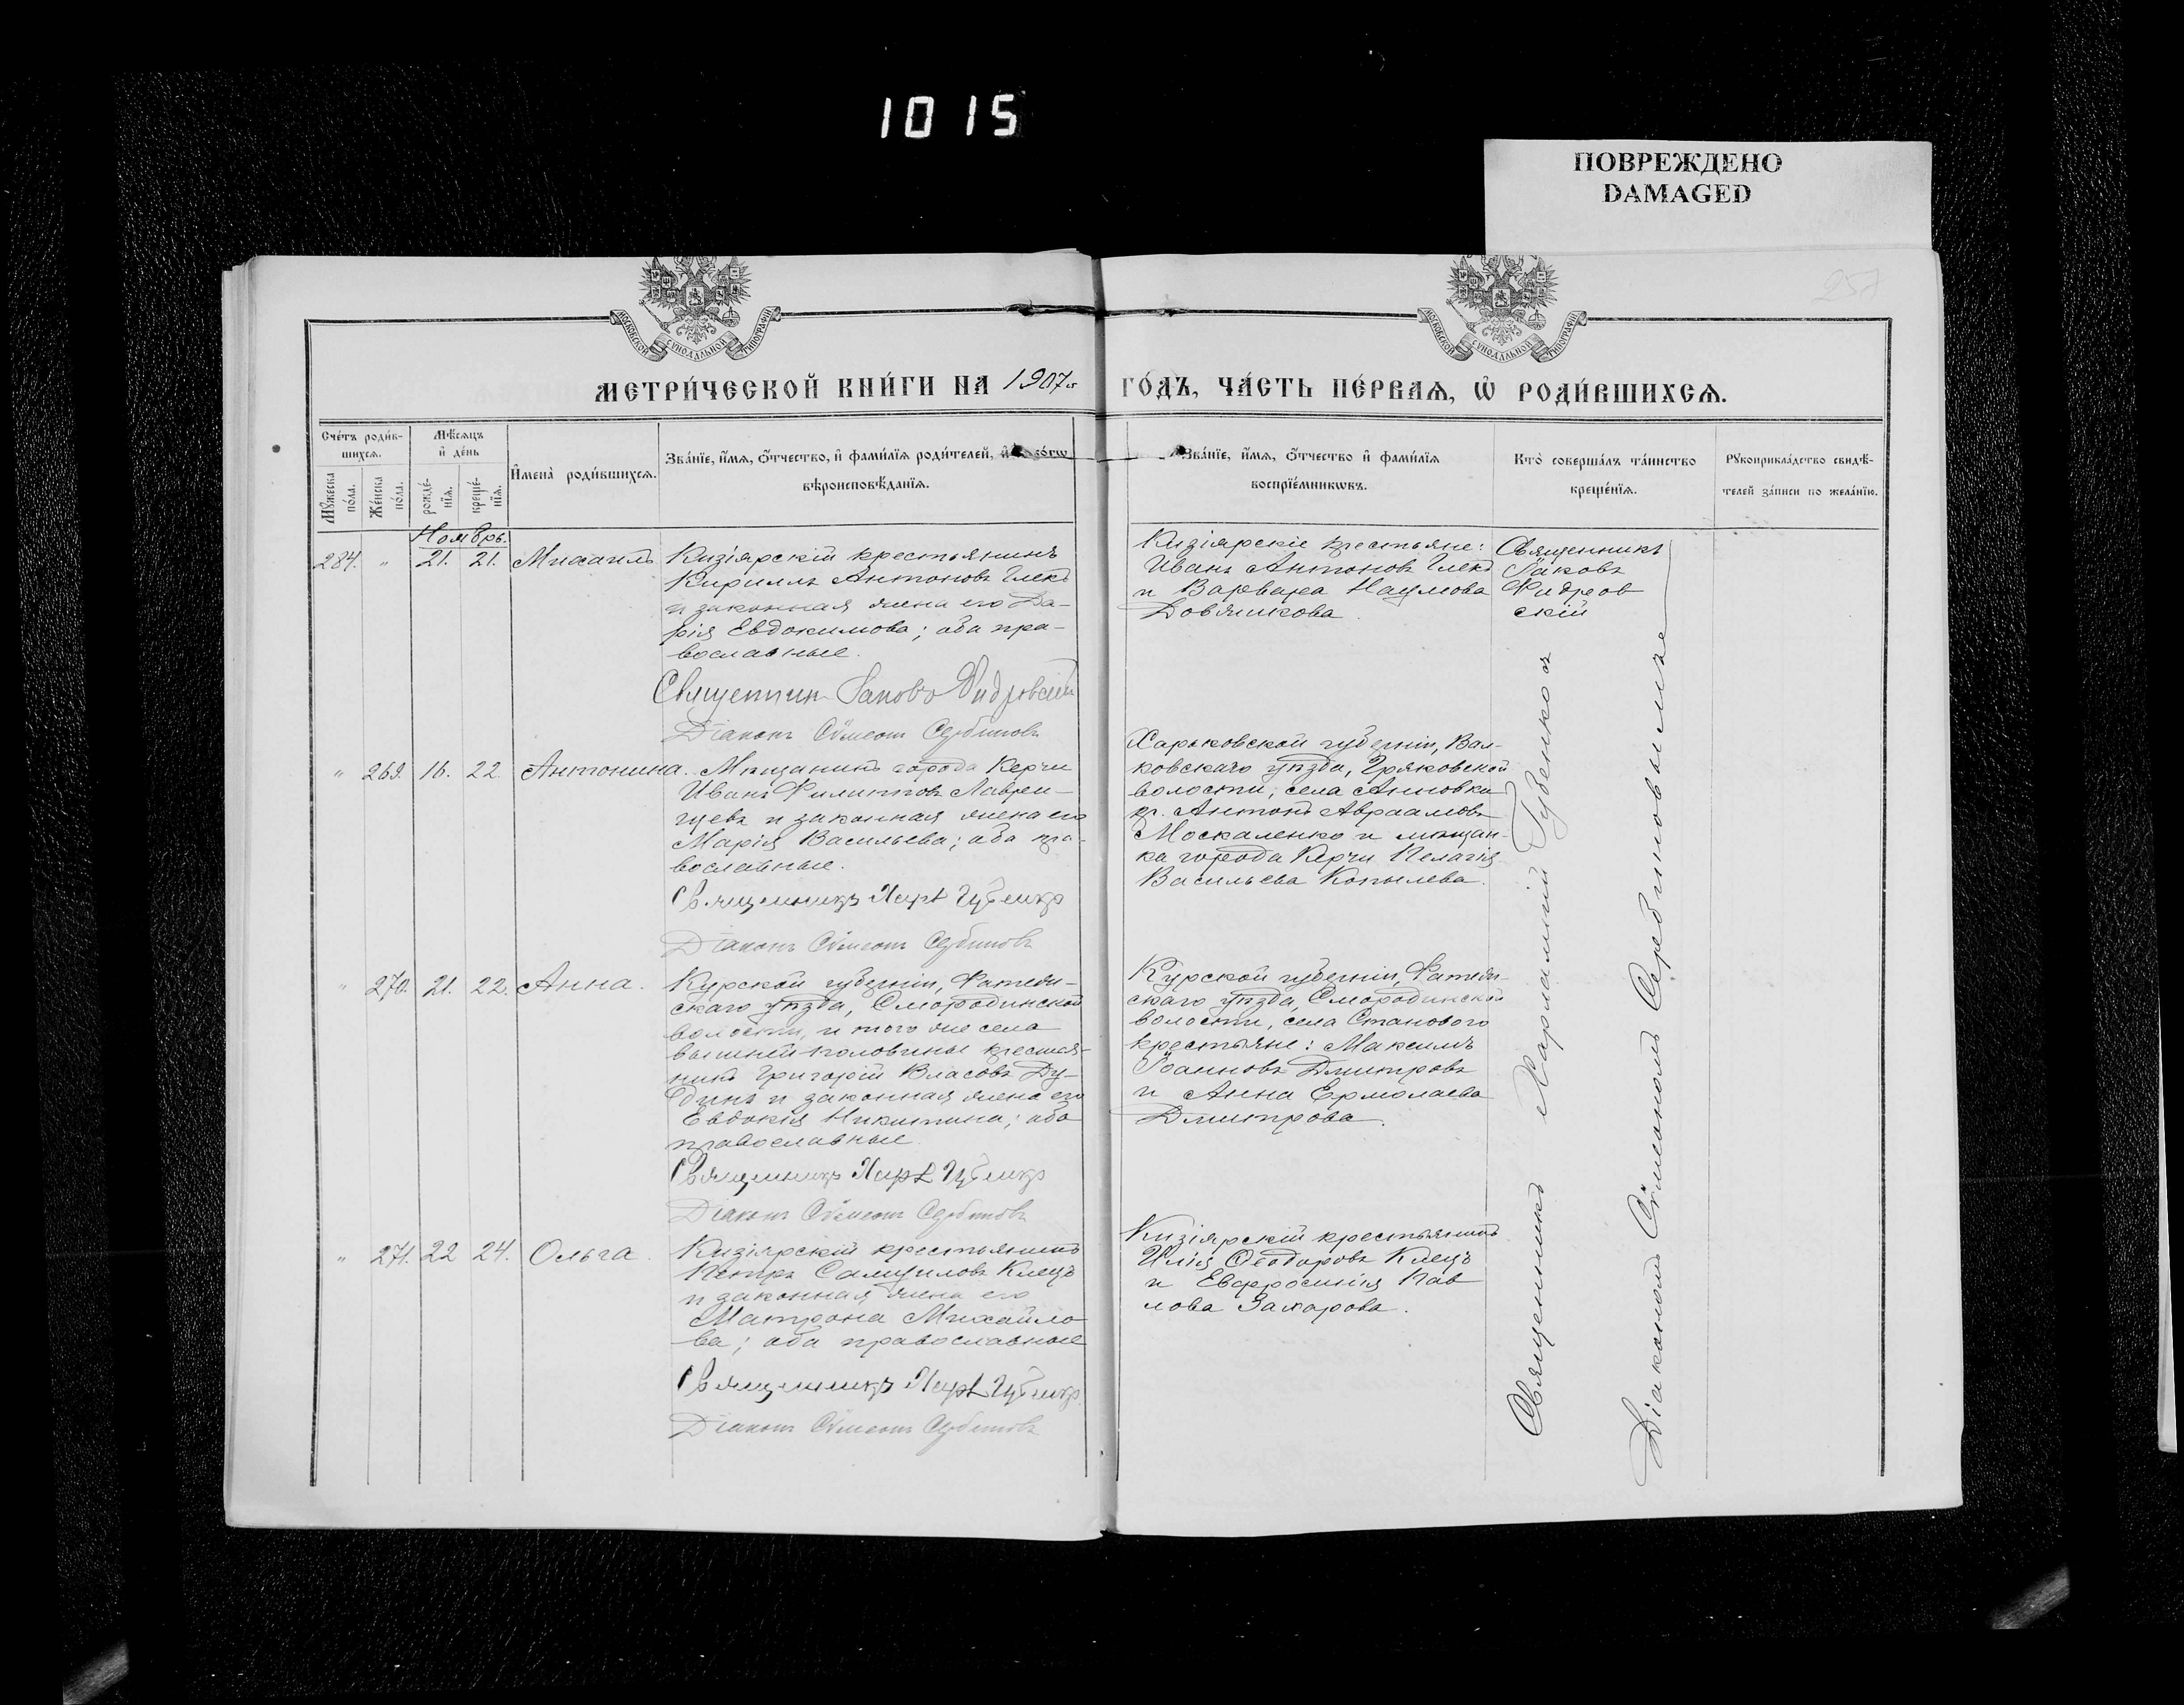 1015
ПОВРЕЖДЕНО
DAMAGED
257
МОСКОВСКОЙ СѴНОДАЛЬНОЙ ТИПОГРАФІИ
МОСКОВСКОЙ СѴНОДАЛЬНОЙ ТИПОГРАФІИ
МЕТРИ́ЧЕСКОЙ КНИ́ГИ НА 1907й ГО́ДЪ, ЧА́СТЬ ПЕ́РВАѦ, Ѡ҆ РОДИ́ВШИХСѦ.
Сче́тъ роди́в-
шихсѧ.
Мꙋ́жеска по́ла.
Же́нска по́ла.
Мѣ́сѧцъ
и҆ де́нь
рожде́-
нїѧ.
креще́-
нїѧ.
И҆мена̀ роди́вшихсѧ.
Зва́нїе, и҆́мѧ, ѻ҆́тчество, и҆ фами́лїѧ роди́телей, и҆
вѣроисповѣ́данїѧ.
Зва́нїе, и҆́мѧ, ѻ҆́тчество и҆ фами́лїѧ
воспрїе́мникѡвъ.
Кто̀ соверша́лъ та́инство
креще́нїѧ.
Рꙋкоприкла́дство свидѣ́-
телей за́писи по жела́нїю.
Ноябрь.
284. " 21. 21. Михаилъ
Кизіярскій крестьянинъ
Кириллъ Антоновъ Глекъ
и законная жена его Да-
рія Евдокимова; оба пра-
вославные.
Священникъ Іаковъ Фидровскій
Діаконъ Сѵмеонъ Сербиновъ
Кизіярскіе крестьяне:
Иванъ Антоновъ Глекъ
и Варвара Наумова
Довжикова.
Священникъ
Іаковъ
Фидров
скій
" 269. 16. 22. Антонина.
Мѣщанинъ города Керчи
Иванъ Филипповъ Лаврен-
щевъ и законная жена его
Марія Васильева; оба пра-
вославные.
Священникъ Харл Губенко
Діаконъ Сѵмеонъ Сербиновъ
Харьковской губерніи, Вал-
ковскаго уѣзда,
волости, села Анновки
кр. Антонъ Авраамовъ
Москаленко и мѣщан-
ка города Керчи Пелагія
Васильева Копылева.
" 270. 21. 22. Анна.
Курской губерніи, Фатеж-
скаго уѣзда, Смородинской
волости, и того же села
вышней половины крестья-
нинъ Григорій Власовъ Ду-
динъ и законная жена его
Евдокія Никитина; оба
православные
Священникъ Харл Губенко
Діаконъ Сѵмеонъ Сербиновъ
Курской губерніи, Фатеж-
скаго уѣзда, Смородинской
волости, села Станового
крестьяне: Максимъ
Іоанновъ Дмитровъ
и Анна Ермолаева
Дмитрова.
" 271. 22 24. Ольга.
Кизіярскій крестьянинъ
Петръ Самуиловъ Клецъ
и законная жена его
Матрона Михайло-
ва; оба православные
Священникъ Харл Губенко
Діаконъ Сѵмеонъ Сербиновъ
Кизіярскій крестьянинъ
Илія Ѳеодоровъ Клецъ
и Евфросинія Пав
лова Захарова.
Священникъ Харлампій Губенко съ
Діакономъ Сѵмеономъ Сербиновымъ